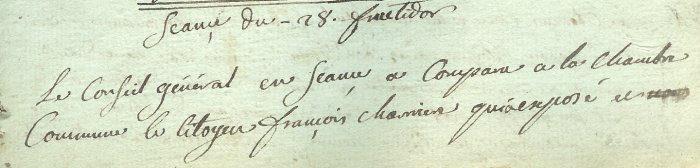 Seance du - 28. fructidor
Le Conseil général en Seance a Comparu a la chambre
Commune le Citoyen françois charrier qui a exposé et